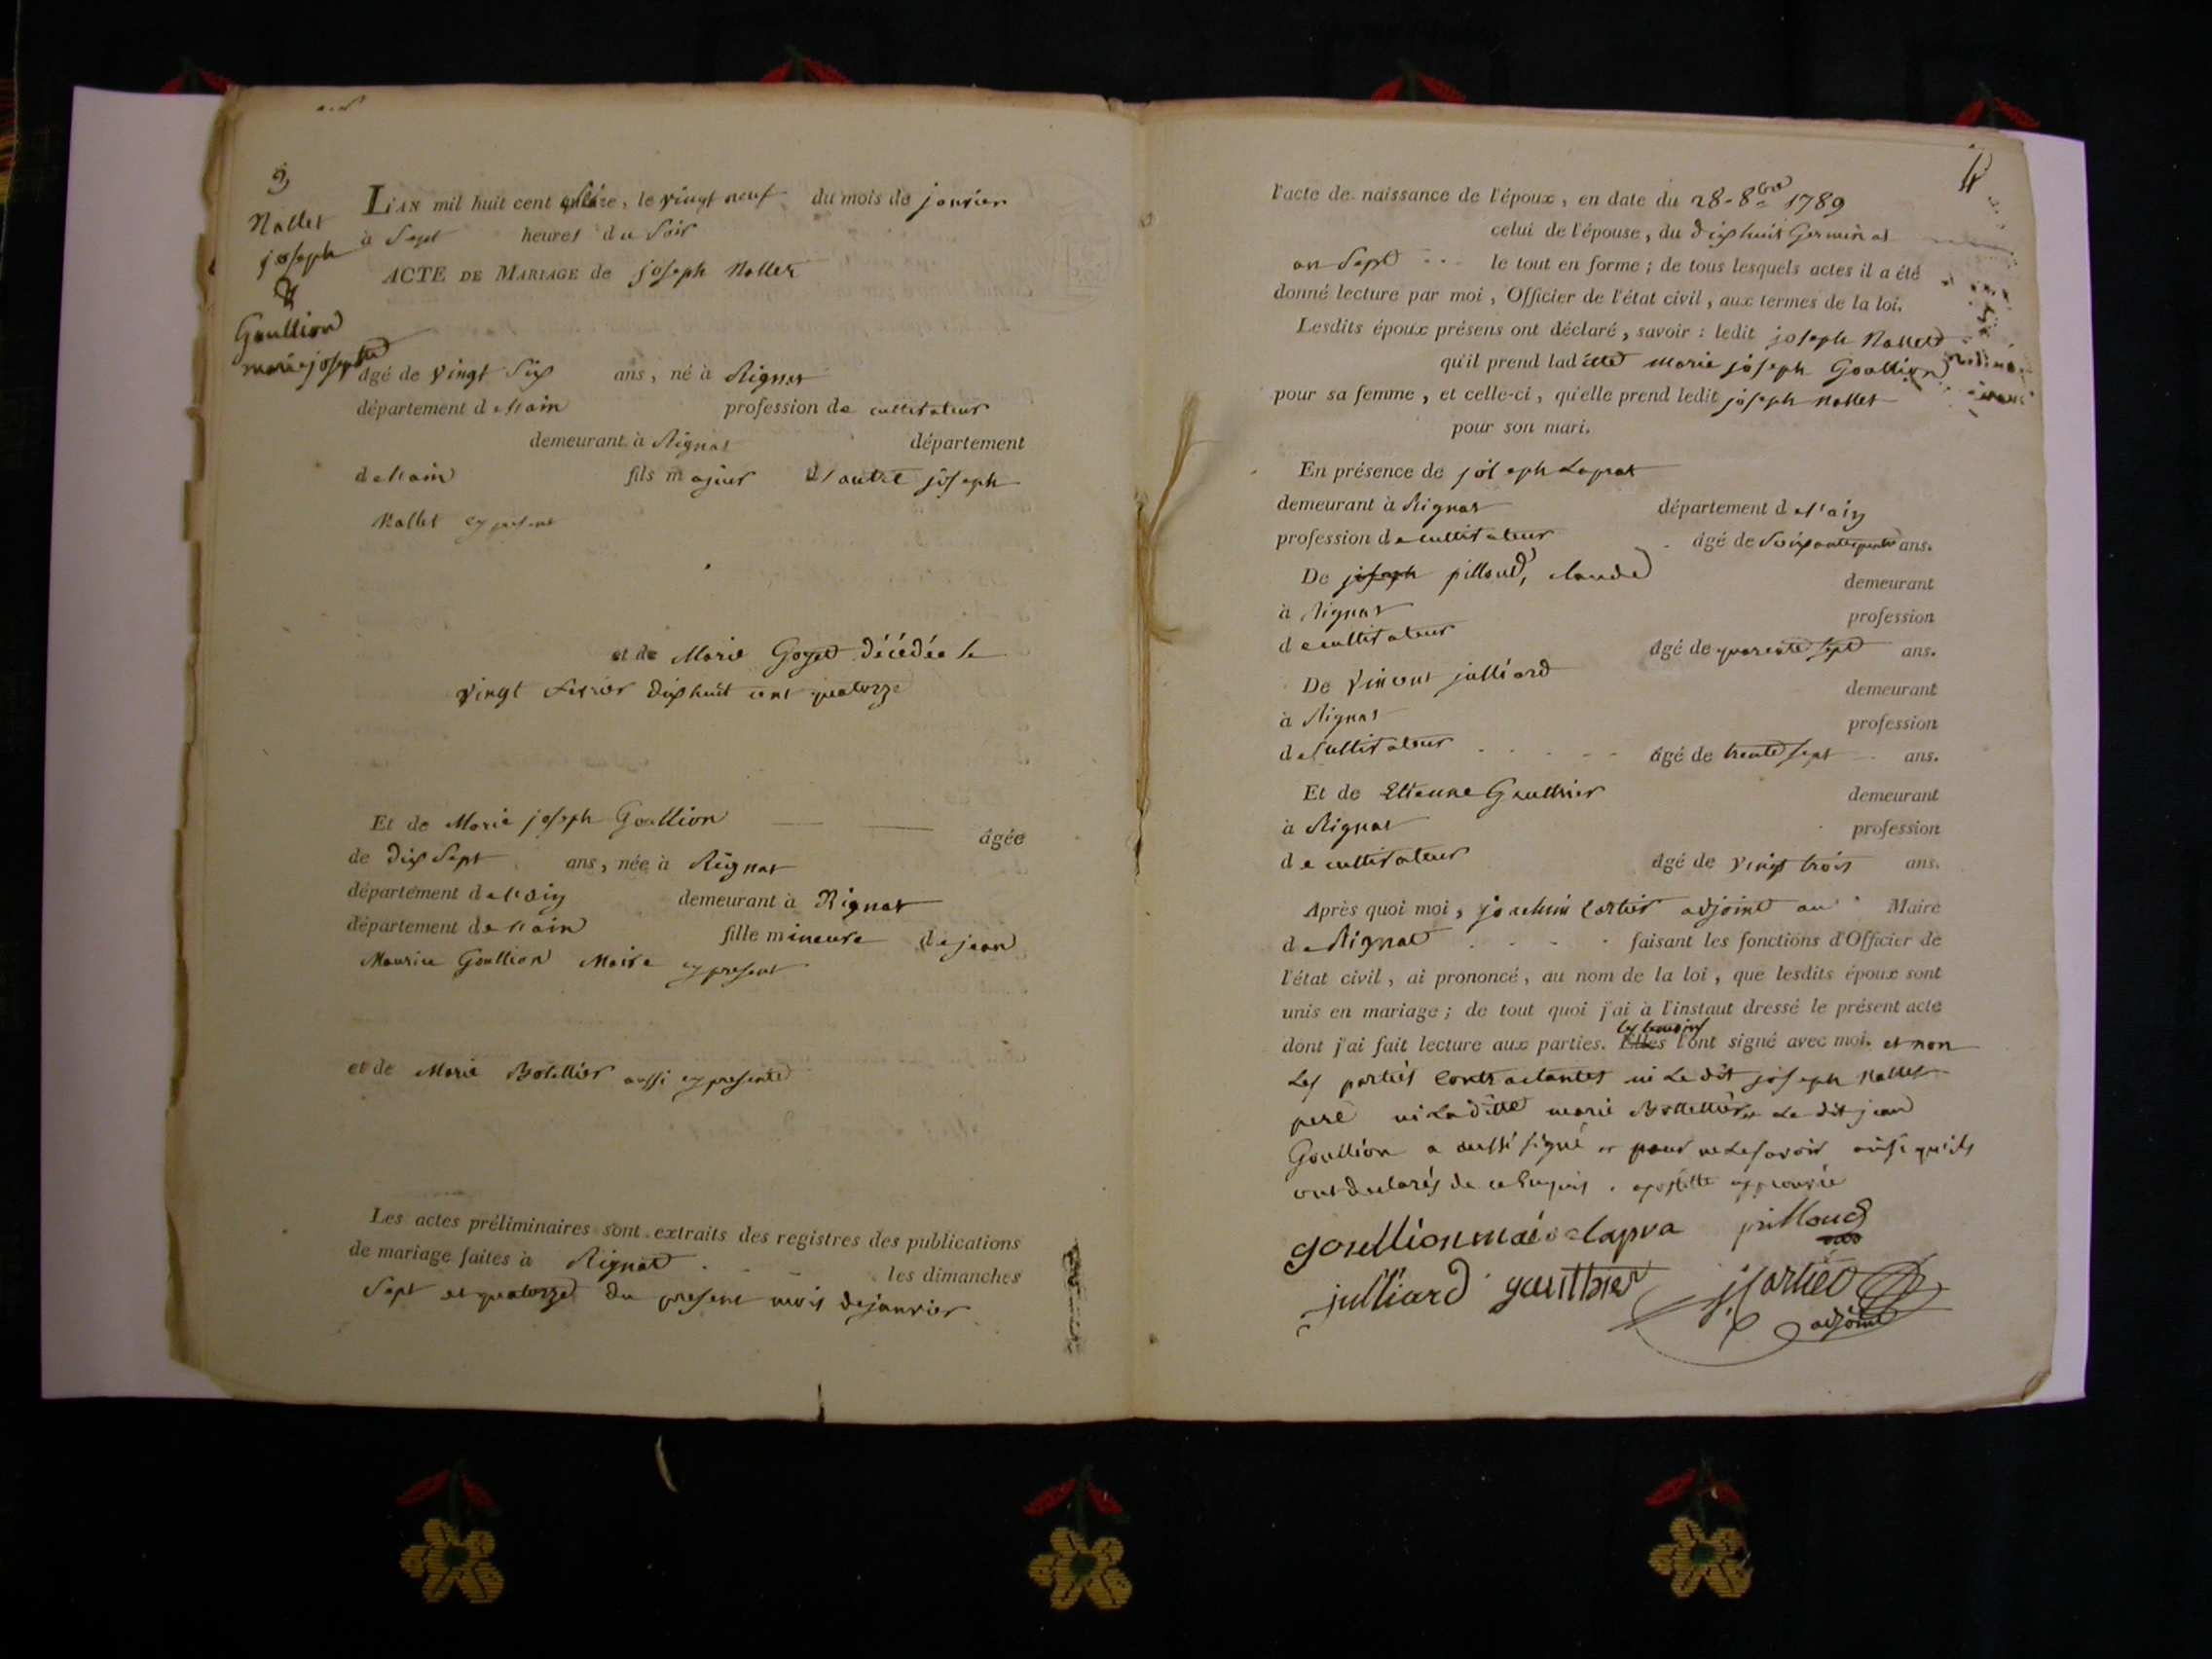 2
Nallet
joseph
&
Goullion
marie josephte
L'AN mil huit cent seize, le vingt neuf du mois de janvier
à Sept heures du Soir
ACTE DE MARIAGE de joseph Nallet
âgé de vingt Six ans, né à Rignat
département de l'ain profession de cultivateur
demeurant à Rignat département
de l'ain fils majeur d'autre joseph
Nallet cy present
et de Marie Goyet décédée le
vingt fevrier dixhuit cent quatorze
Et de Marie joseph Goullion âgée
de dix Sept ans, née à Rignat
département de l'ain demeurant à Rignat
département de l'ain fille mineure de jean
Maurice Goullion Maire cy present
et de Marie Botellier aussi cy presente
Les actes préliminaires sont extraits des registres des publications
de mariage faites à Rignat les dimanches
Sept et quatorze du present mois de janvier
l'acte de naissance de l'époux, en date du 28 - 8bre 1789
celui de l'épouse, du dixhuit Germinal
an Sept le tout en forme ; de tous lesquels actes il a été
donné lecture par moi, Officier de l'état civil, aux termes de la loi.
Lesdits époux présens ont déclaré, savoir : ledit joseph Nallet
qu'il prend laditte Marie joseph Goullion
pour sa femme, et celle-ci, qu'elle prend ledit joseph Nallet
pour son mari.
En présence de joseph Laprat
demeurant à Rignat département de l'ain
profession de cultivateur âgé de ans.
De joseph pilloud, claude demeurant
à Rignat profession
de cultivateur âgé de quarente Sept ans.
De Vincent julliard demeurant
à Rignat profession
de Cultivateur âgé de trente Sept ans.
Et de Etienne Gauthier demeurant
à Rignat profession
de cultivateur âgé de vingt trois ans.
Après quoi moi, joachim Cartier adjoint au Maire
de Rignat faisant les fonctions d'Officier de
l'état civil, ai prononcé, au nom de la loi, que lesdits époux sont
unis en mariage ; de tout quoi j'ai à l'instant dressé le présent acte
les temoins
dont j'ai fait lecture aux parties. Elles l'ont signé avec moi. et non
Les parties Contractantes ni Le dit joseph Nallet
pere ni Laditte marie Botellier Le dit jean
Goullion a aussi signé pour ne Le savoir ainsi qu'ils
ont declarés de ce Enquis. apostille approuvée
goullion maire lapra pilloud
julliard gauthier j Cartier
adjoint